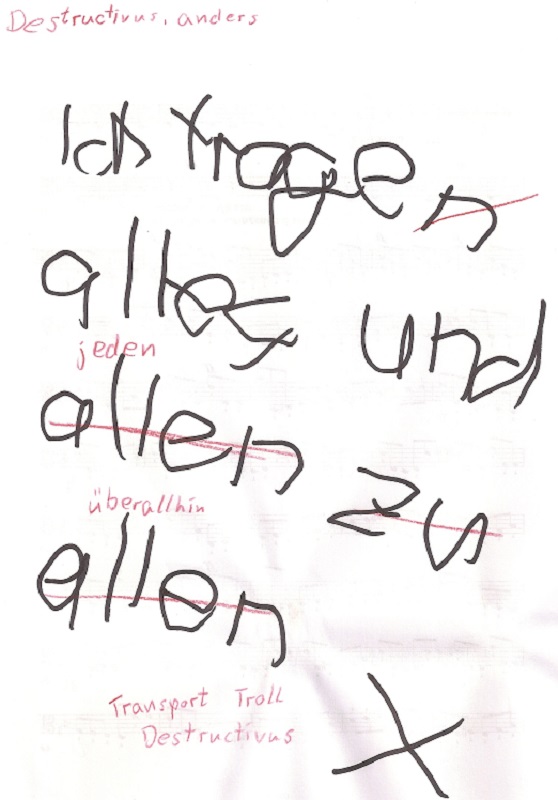 Destructivus, anders
Ich tragen
alles und
jeden
allen zu
überallhin
allen
Transport Troll
Destructivus
X